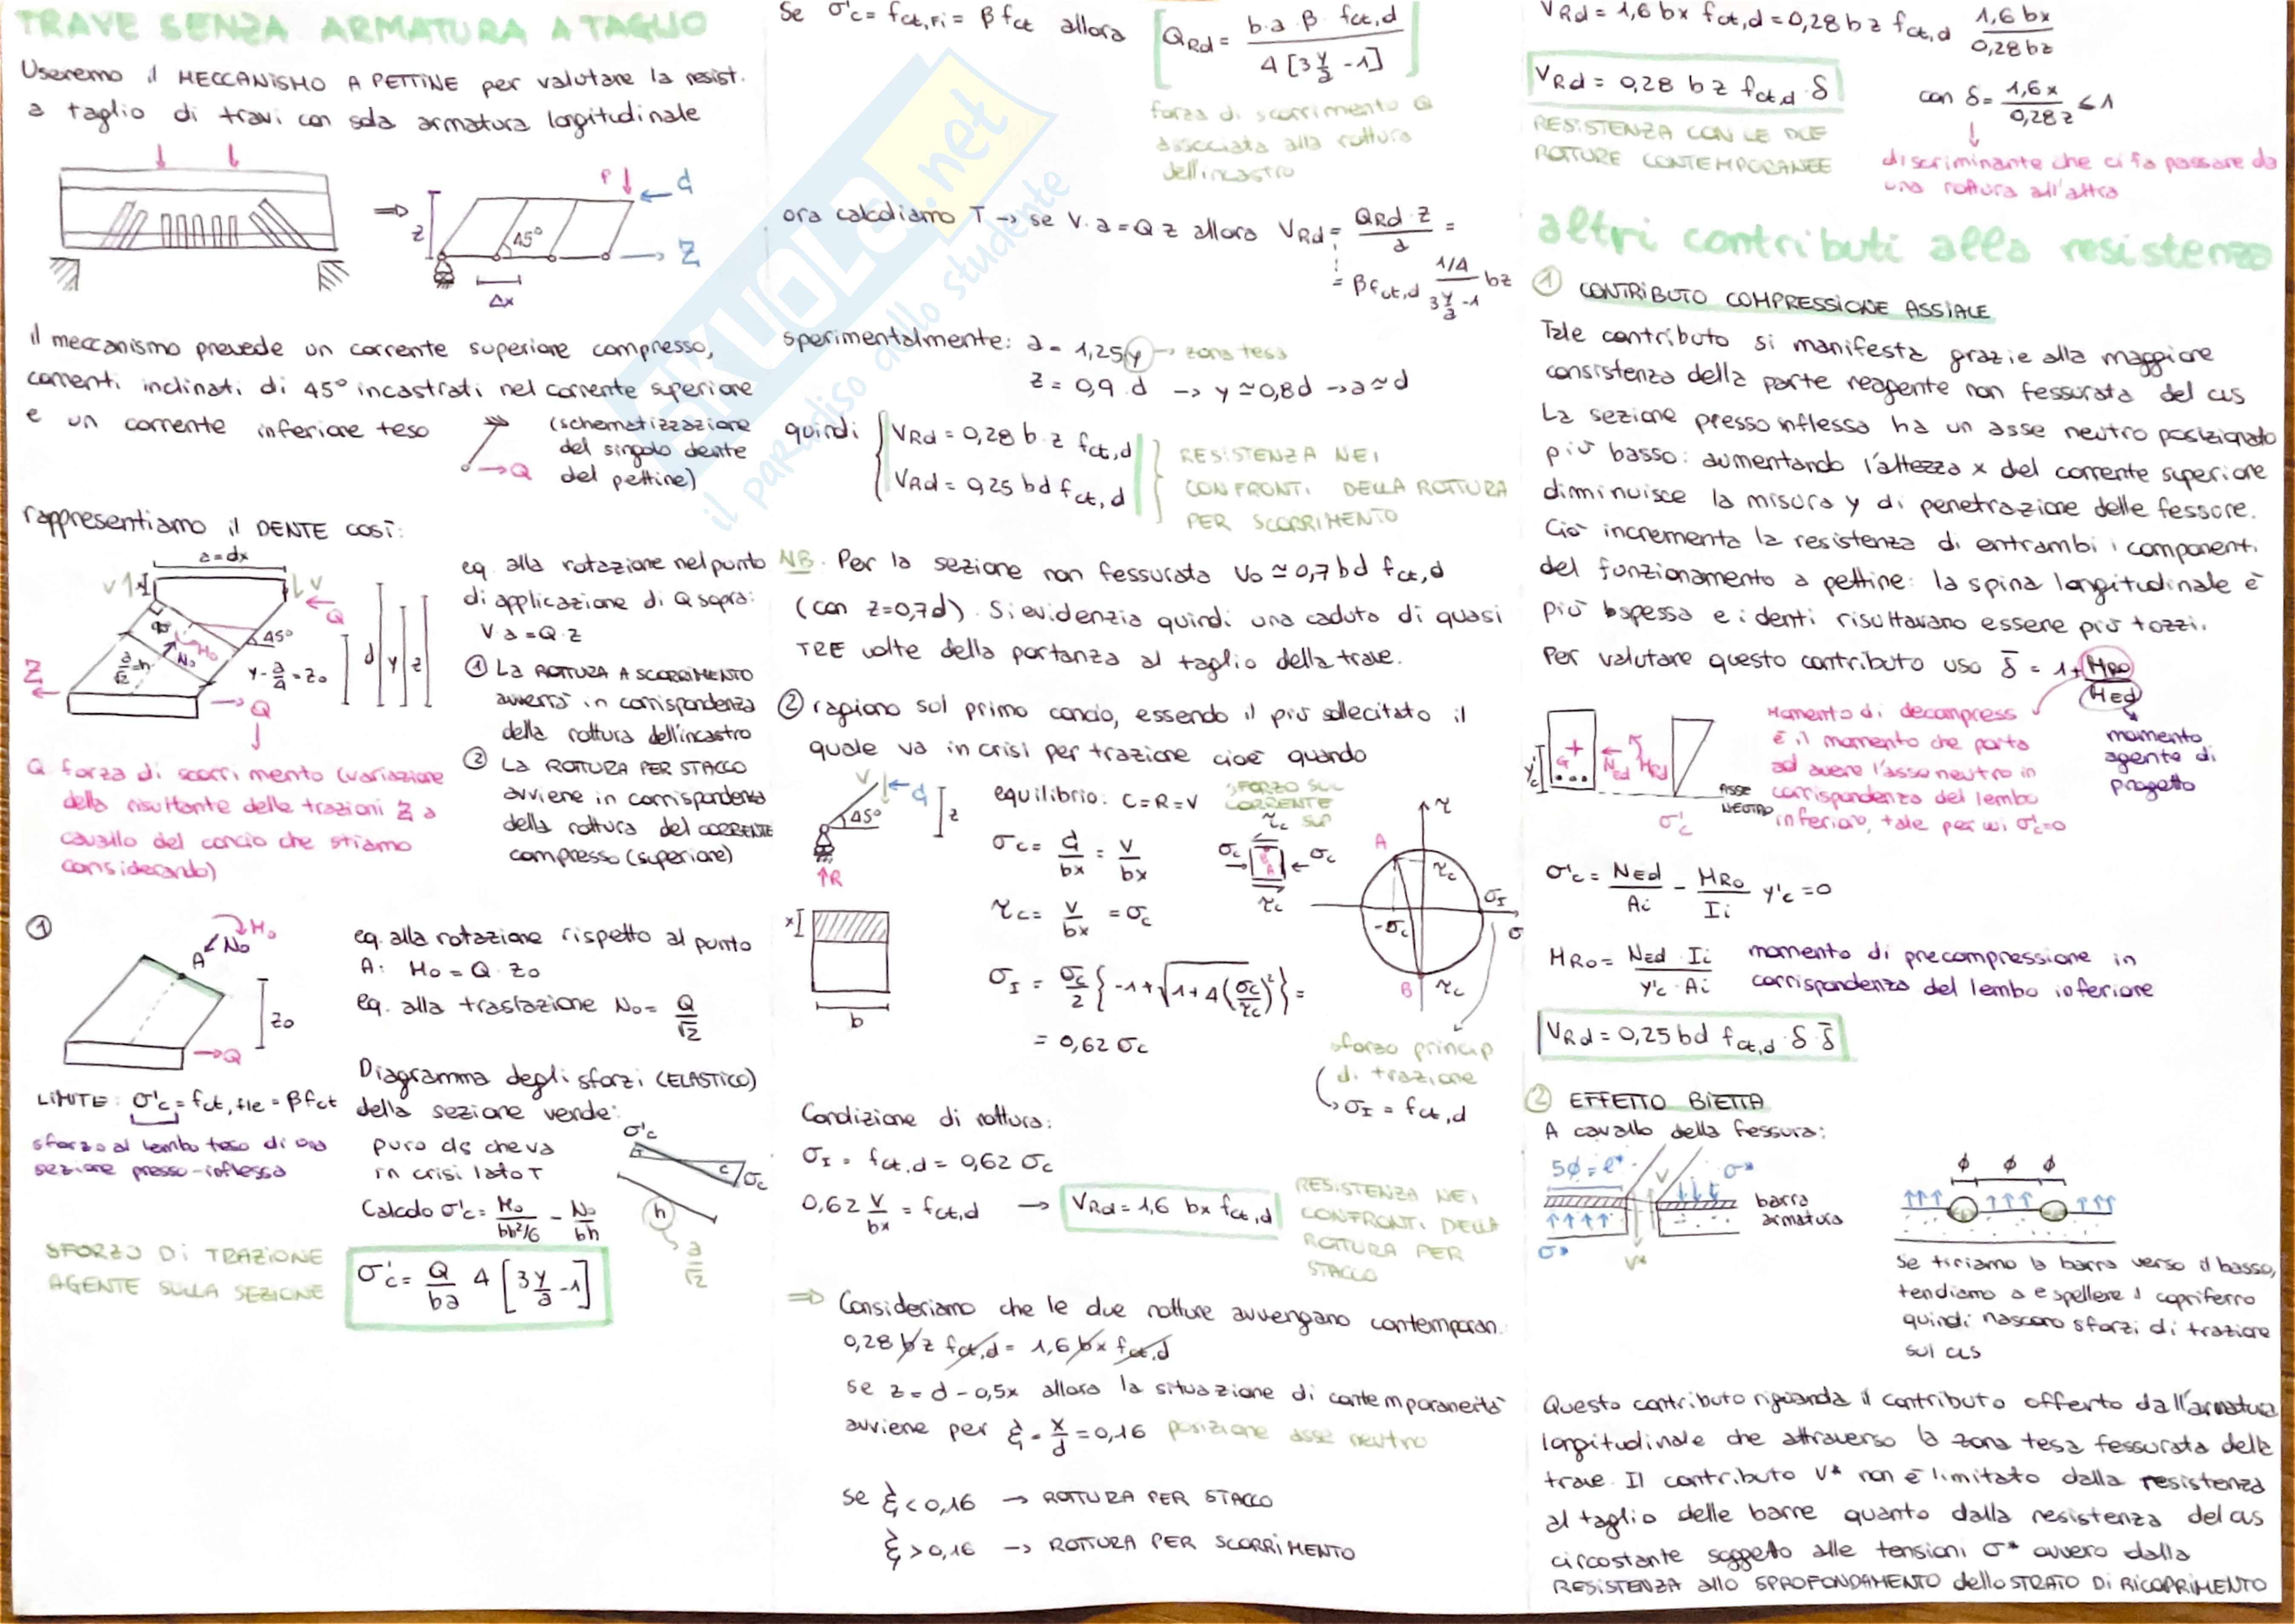 TRAVE SENZA ARMATURA A TAGLIO
Useremo il MECCANISMO A PETTINE per valutare la resist.
a taglio di travi con sola armatura longitudinale
P
d
z
45°
Z
Δx
il meccanismo prevede un corrente superiore compresso,
correnti inclinati di 45° incastrati nel corrente superiore
e un corrente inferiore teso
→Q
(schematizzazione
del singolo dente
del pettine)
rappresentiamo il DENTE COSÌ:
a=dx
V
x
V
Q
90°
45°
M₀
N₀
a/√2=h
y-a/4=z₀
d
y
z
Z
Q
Q forza di scorrimento (variazione
della risultante delle trazioni Z a
cavallo del concio che stiamo
considerando)
eq. alla rotazione nel punto
di applicazione di Q sopra:
V·a=Q·z
① La ROTTURA A SCORRIMENTO
avverrà in corrispondenza
della rottura dell'incastro
② LA ROTTURA PER STACCO
avviene in corrispondenza
della rottura del CORRENTE
compresso (superiore)
①
M₀
N₀
A
z₀
→Q
eq. alla rotazione rispetto al punto
A: M₀ = Q·z₀
eq. alla traslazione N₀ = Q/√2
LIMITE: σ'c = fct,fle = βfct
sforzo al lembo teso di una
sezione presso-inflessa
Diagramma degli sforzi (ELASTICO)
della sezione verde:
puro cls che va
in crisi lato T
σ'c
T
C
σc
h
a/√2
Calcolo σ'c = M₀/(bh²/6) - N₀/bh
SFORZO DI TRAZIONE
AGENTE SULLA SEZIONE
σ'c = Q/ba 4 [3 y/a -1]
Se σ'c = fct,Fi = β fct allora [QRd = b·a·β·fct,d / 4[3 y/a -1]]
forza di scorrimento Q
associata alla rottura
dell'incastro
ora calcoliamo T → se V·a=Q·z allora VRd = QRd·z/a =
= βfct,d (1/4)/(3 y/a -1) bz
sperimentalmente: a = 1,25y → zona tesa
z = 0,9·d → y≃0,8d → a≃d
quindi { VRd = 0,28 b·z fct,d
VRd = 0,25 bd fct,d
RESISTENZA NEI
CONFRONTI DELLA ROTTURA
PER SCORRIMENTO
NB. Per la sezione non fessurata V₀ ≃ 0,7 bd fct,d
(con z=0,7d). Si evidenzia quindi una caduta di quasi
TRE volte della portanza al taglio della trave.
② ragiono sul primo concio, essendo il più sollecitato il
quale va in crisi per trazione cioè quando
V
d
45°
z
↑R
x
b
equilibrio: C=R=V
SFORZO SUL
CORRENTE
SUP
σc = d/bx = V/bx
τc = V/bx = σc
σI = σc/2 {-1+√(1+4(σc/τc)²)} =
= 0,62 σc
τc
σc
B
A
σc
τc
τ
A
τc
σI
-σc
σ
B
τc
sforzo princip
di trazione
↳ σI = fct,d
Condizione di rottura:
σI = fct,d = 0,62 σc
0,62 V/bx = fct,d → VRd = 1,6 bx fct,d
RESISTENZA NEI
CONFRONTI DELLA
ROTTURA PER
STACCO
⇒ Consideriamo che le due rotture avvengano contemporan.
0,28 bz fct,d = 1,6 bx fct,d
se z = d-0,5x allora la situazione di contemporaneità
avviene per ξ = x/d = 0,16 posizione asse neutro
se ξ<0,16 → ROTTURA PER STACCO
ξ>0,16 → ROTTURA PER SCORRIMENTO
VRd = 1,6 bx fct,d = 0,28 b z fct,d 1,6 bx/0,28 bz
VRd = 0,28 b z fct,d · δ
con δ = 1,6 x/0,28 z ≤ 1
RESISTENZA CON LE DUE
ROTTURE CONTEMPORANEE
discriminante che ci fa passare da
una rottura all'altra
altri contributi alla resistenza
① CONTRIBUTO COMPRESSIONE ASSIALE
Tale contributo si manifesta grazie alla maggiore
consistenza della parte reagente non fessurata del cls
La sezione presso inflessa ha un asse neutro posizionato
più basso: aumentando l'altezza x del corrente superiore
dimminuisce la misura y di penetrazione delle fessure.
Ciò incrementa la resistenza di entrambi i componenti
del funzionamento a pettine: la spina longitudinale è
più spessa e i denti risultavano essere più tozzi.
Per valutare questo contributo uso δ̄ = 1+ MR0/MEd
G
y'c
NEd
MRd
ASSE
NEUTRO
σ'c
Momento di decompress
è il momento che porta
ad avere l'asse neutro in
corrispondenza del lembo
inferiore, tale per cui σ'c=0
momento
agente di
progetto
σ'c = NEd/Ai - MR0/Ii y'c = 0
MR0 = NEd·Ii/y'c·Ai momento di precompressione in
corrispondenza del lembo inferiore
VRd = 0,25 bd fct,d · δ·δ̄
② EFFETTO BIETTA
A cavallo della fessura:
5ϕ = e*
V
σ*
barra
armatura
σ*
V*
ϕ ϕ ϕ
Se tiriamo la barra verso il basso,
tendiamo a espellere il copriferro
quindi nascono sforzi di trazione
sul cls
Questo contributo riguarda il contributo offerto dall'armatura
longitudinale che attraverso la zona tesa fessurata della
trave. Il contributo V* non è limitato dalla resistenza
al taglio delle barre quanto dalla resistenza del cls
circostante soggetto alle tensioni σ* ovvero dalla
RESISTENZA allo SPROFONDAMENTO dello STRATO DI RICOPRIMENTO
SKUOLA.net
il paradiso dello studente